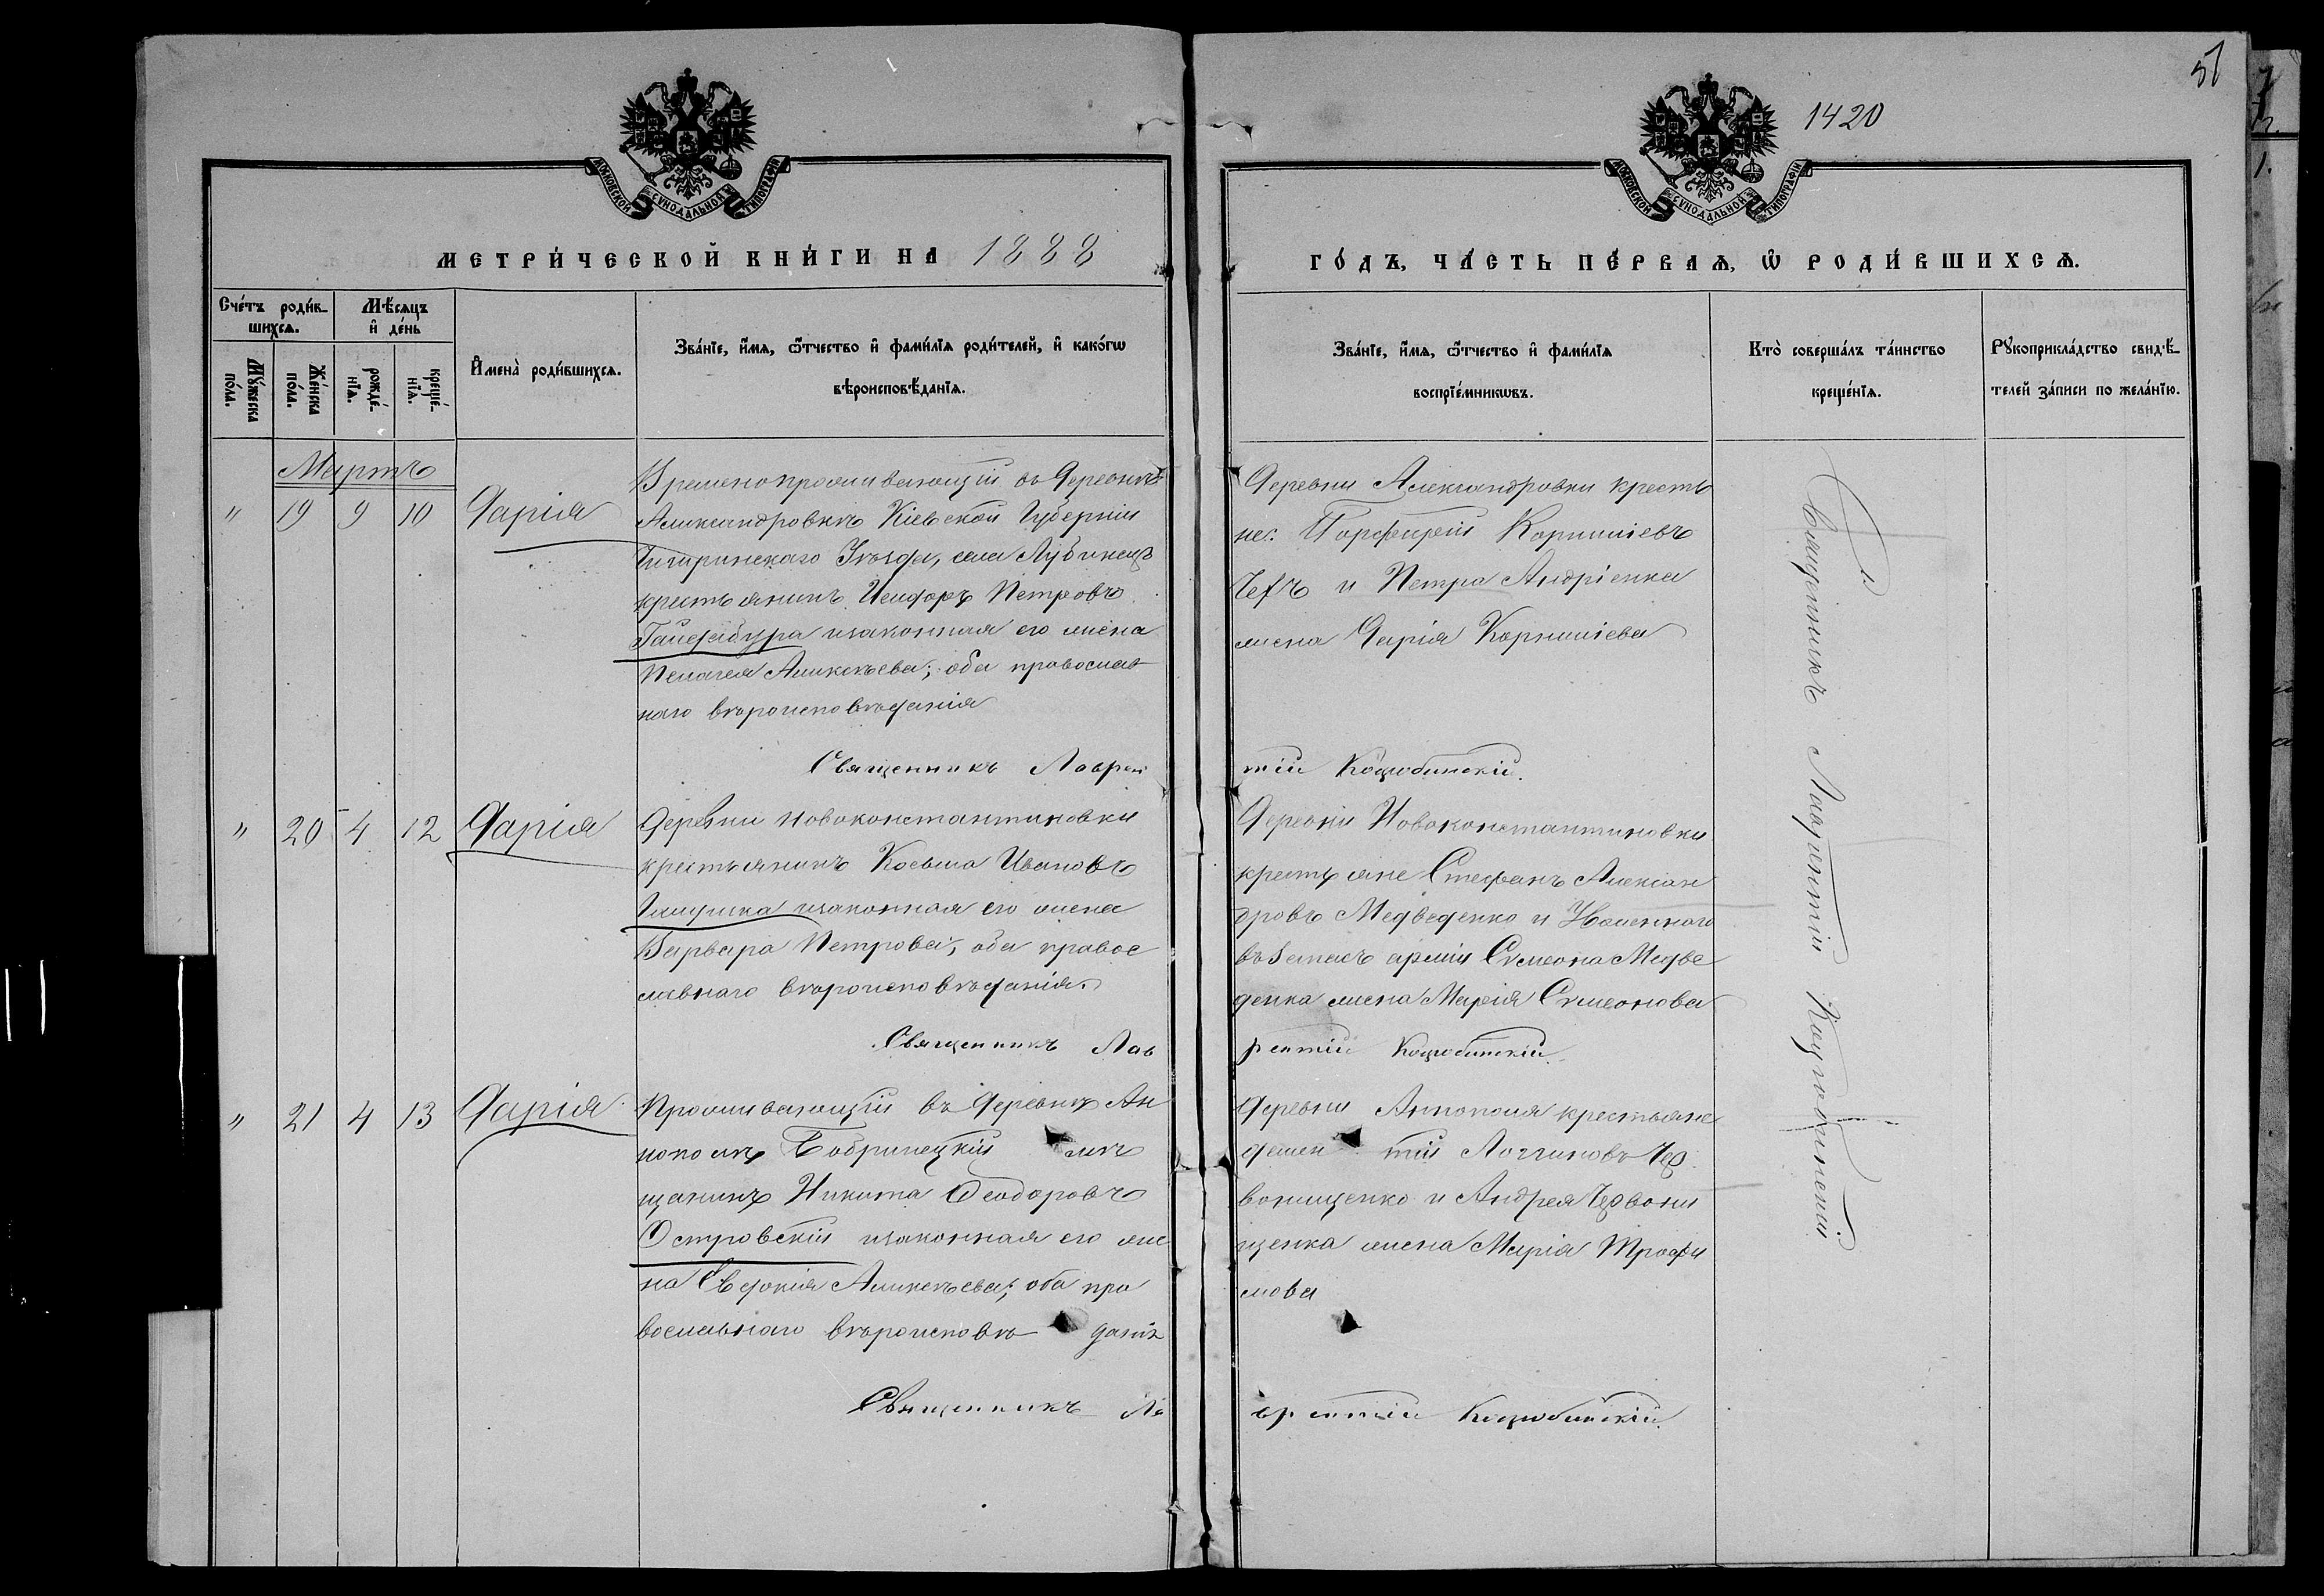 51
1420
МОСКОВСКОЙ СѴНОДАЛЬНОЙ ТИПОГРАФІИ
МОСКОВСКОЙ СѴНОДАЛЬНОЙ ТИПОГРАФІИ
МЕТРИ́ЧЕСКОЙ КНИ́ГИ НА 1888
ГО́ДЪ, ЧА́СТЬ ПЕ́РВАѦ, Ѿ РОДИ́ВШИХСѦ.
Сче́тъ роди́в-
шихсѧ.
Мѣ́сѧцъ
и҆ де́нь
Мꙋ́жеска
по́ла.
Же́нска
по́ла.
рожде́-
нїѧ.
креще́-
нїѧ.
И҆мена̀ роди́вшихсѧ.
Зва́нїе, и҆́мѧ, ѻ҆́тчество и҆ фами́лїѧ роди́телей, и҆ како́гѡ
вѣроисповѣ́данїѧ.
Зва́нїе, и҆́мѧ, ѻ҆́тчество и҆ фами́лїѧ
воспрїе́мникѡвъ.
Кто̀ соверша́лъ та́инство
креще́нїѧ.
Рꙋкоприкла́дство свидѣ́-
телей за́писи по жела́нїю.
Мартъ
" 19 9 10 Дарія
Временопроживающій въ Деревнѣ
Александровкѣ Кіевской Губерніи
Чигиринскаго Уѣзда, села Лубенецъ
крестьянинъ Исидоръ Петровъ
изаконная его жена
Пелагея Алексѣева; оба православ
наго вѣроисповѣданія
Священникъ Лаврен
Деревни Александровки кресть
не: Порфирій Корниліевъ
и Петра Андріенка
жена Дарія Корниліева
тій Коцюбинскій.
" 20 4 12 Дарія
Деревни Новоконстантиновки
крестьянинъ Косьма Ивановъ
изаконная его жена
Варвара Петрова; оба правос
лавнаго вѣроисповѣданія.
Священникъ Лав
Деревни Новоконстантиновки
крестьяне Стефанъ Алексан
дровъ Медведенко и
въ Запасъ арміи Сѵмеона Медве
денка жена Марія Сѵмеонова
рентій Коцюбинскій.
" 21 4 13 Дарія
Проживающій въ Деревнѣ Ан
нополѣ Бобринецкій мѣ
щанинъ Никита Ѳеодоровъ
Островскій изаконная его же
на Евдокія Алексѣева; оба пра
вославнаго вѣроисповѣ даніѧ
Священникъ Ла
Деревни Аннополя крестьяне
Демен тій Логгиновъ Чер
вонищенко и Андрея Червони
щенка жена Марія Трофи
мова
врентій Коцюбинскій.
Священникъ Лаврентій Коцюбинскій